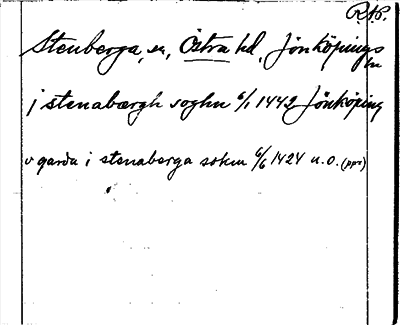 R.A.P.
Stenberga, sn, Östra hd, Jönköpings
ln
j stenabærgh soghn 6/1 1442 Jönköping
v garda i stenaberga sokun 6/6 1424 u.o. (ppr)